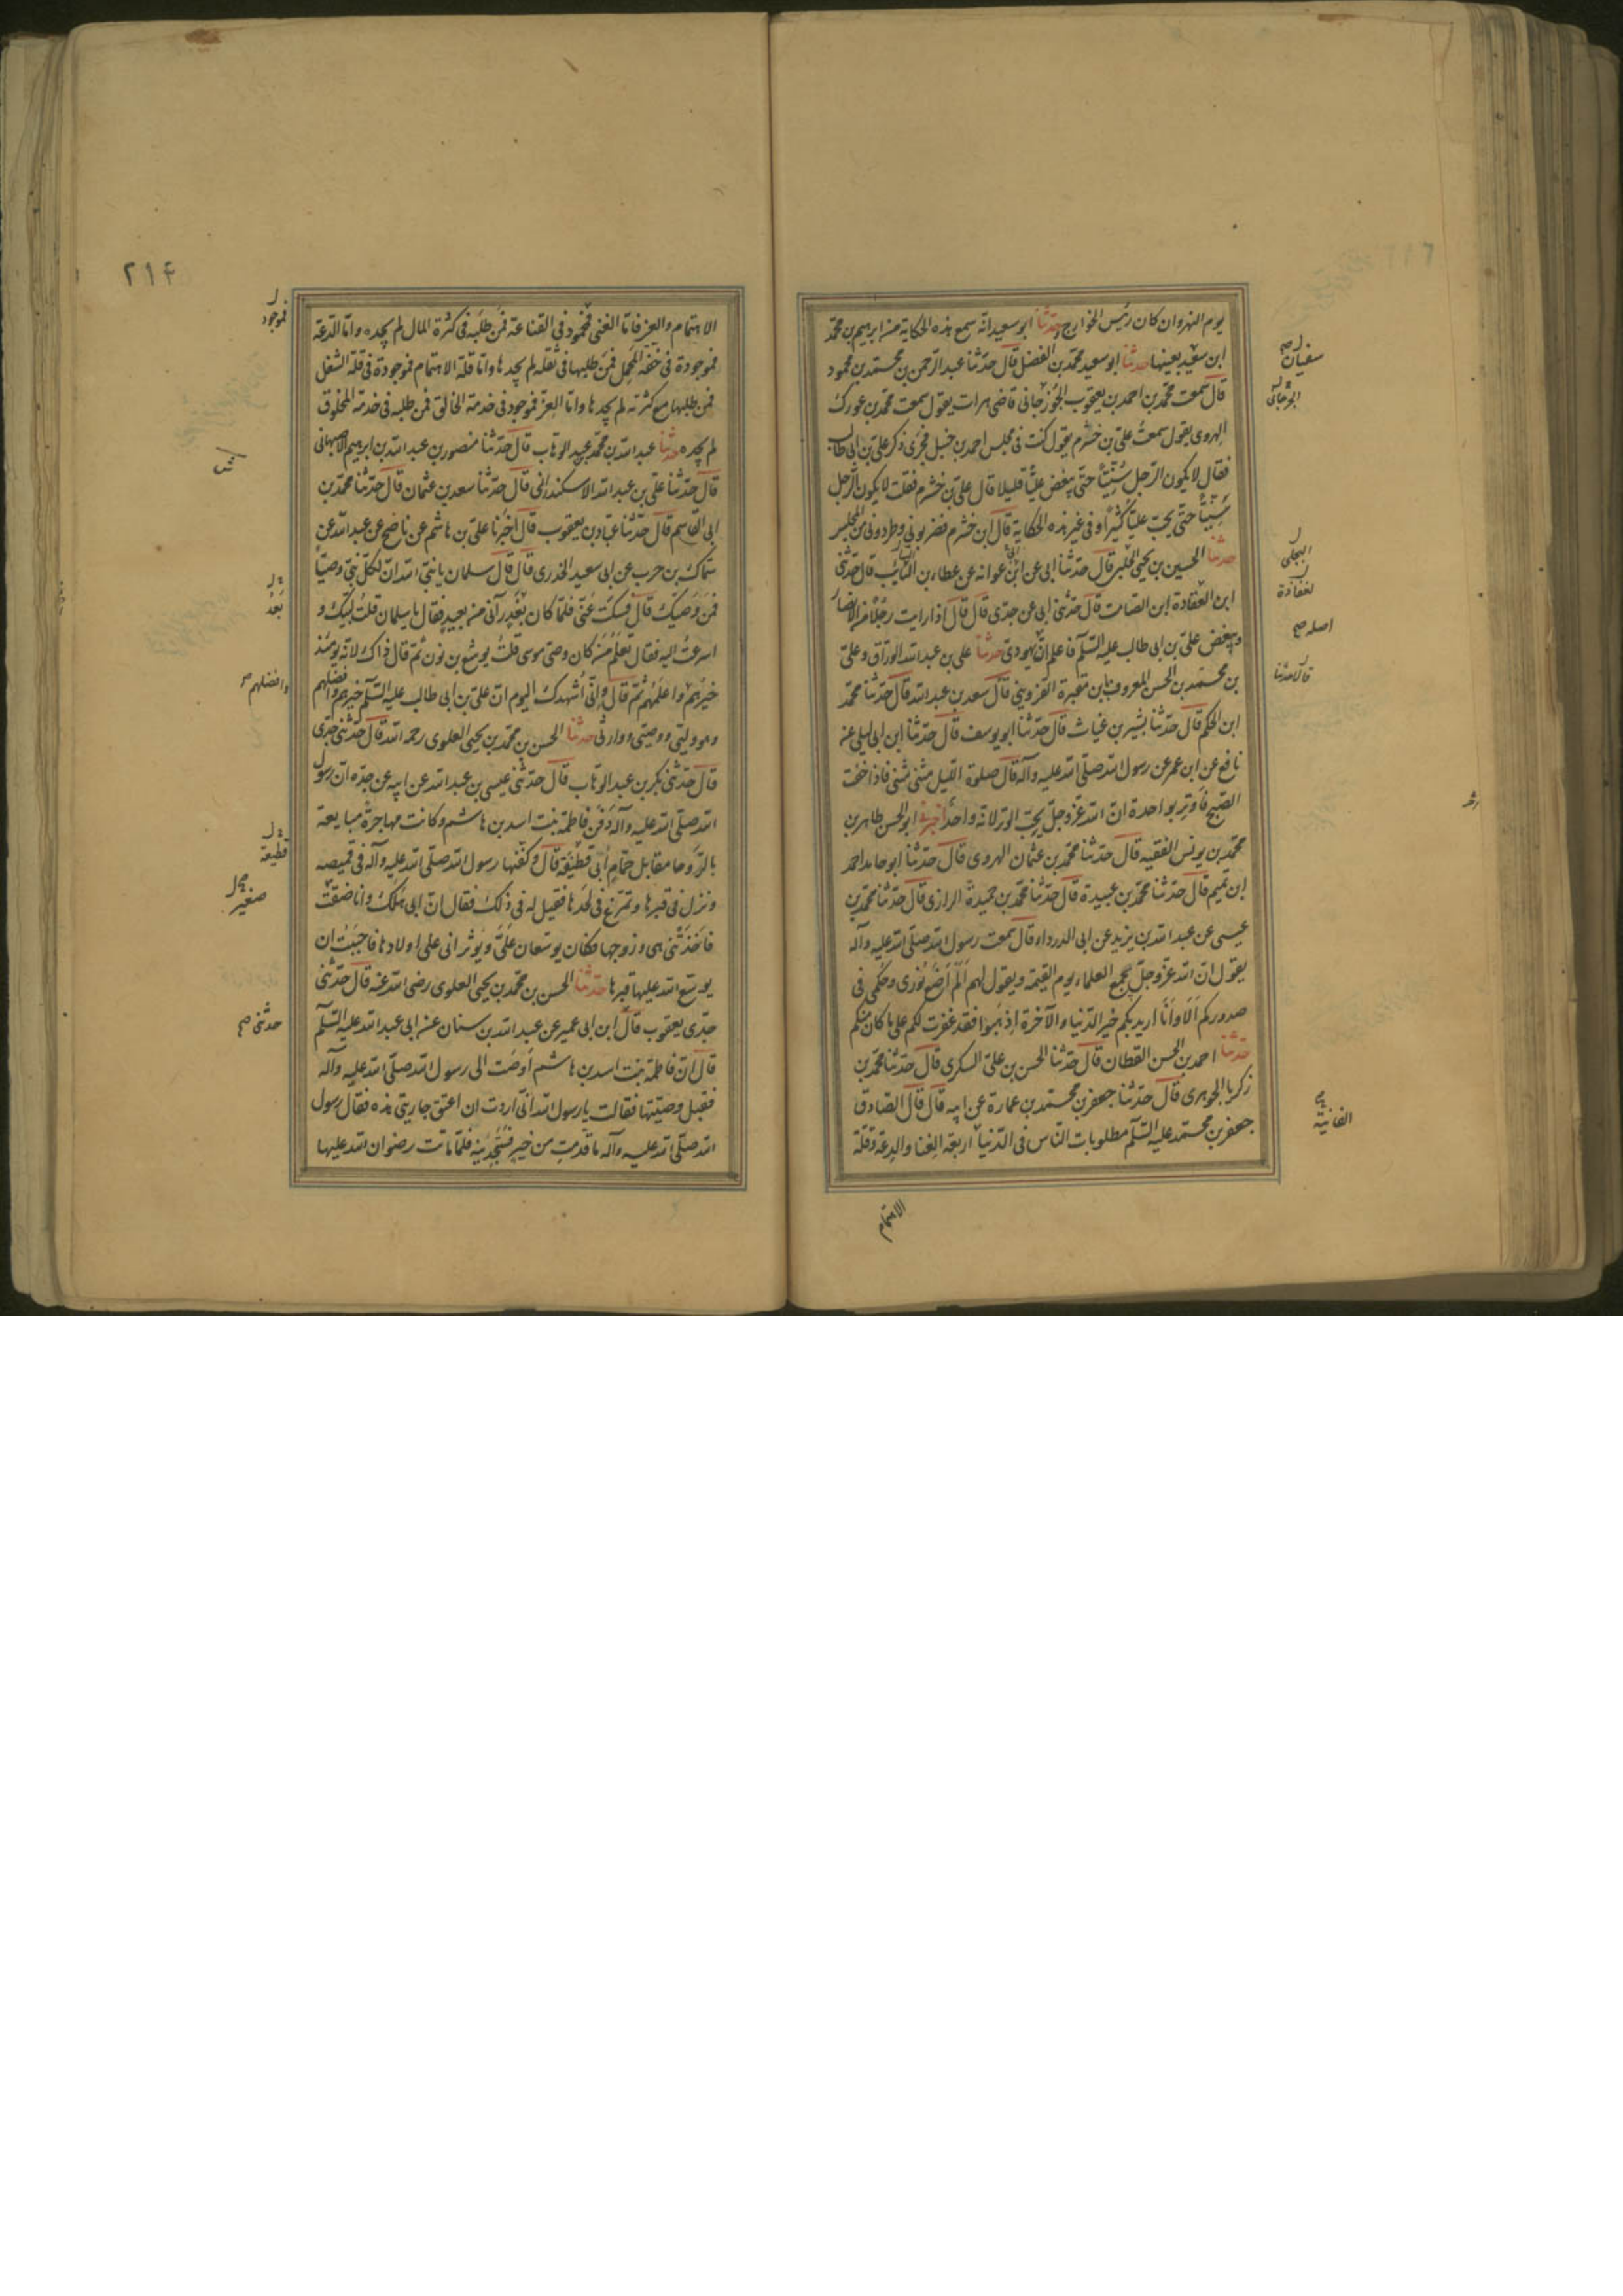 يوم النهروان كان رئيس الخوارج حدثنا ابو سعيد انه سمع هذه الحكاية منه ابرهيم بن محمد
ابن سعيد بعينها حدثنا ابو سعيد محمد بن الفضل قال حدثنا عبد الرحمن بن محمد بن محمود
قال سمعت محمد بن احمد بن يعقوب الجوزجاني قاضي هرات يقول سمعت محمد بن عورك
الهروي يقول سمعت علي بن خشرم يقول كنت في مجلس احمد بن حنبل فجرى ذكر علي بن ابي طالب
فقال لا يكون الرجل سنيا حتى يبغض عليا قليلا قال علي بن خشرم فقلت لا يكون الرجل
سنيا حتى يحب عليا كثيرا وفي غير هذه الحكاية قال ابن خشرم فضربوني وطردوني من المجلس
حدثنا الحسين بن يحيى قال حدثنا ابي عن ابن عوانه عن عطاء بن السائب قال حدثني
ابن العقادة ابن الصامت قال حدثني ابي عن جدي قال قال اذا رايت رجلا من الانصار
يبغض علي بن ابي طالب عليه السلم فاعلم ان يهودي حدثنا علي بن عبد الله الوراق وعلي
بن محمد بن الحسن المعروف بابن مقبرة القزويني قال سعد بن عبد الله قال حدثنا محمد
ابن الحكم قال حدثنا بشير بن غياث قال حدثنا ابو يوسف قال حدثنا ابن ابي ليلى عنه
نافع عن ابن عمر عن رسول الله صلى الله عليه وآله قال صلوة الليل مثنى مثنى فاذا خفت
الصبح فأوتر بواحدة ان الله عز وجل يحب الوتر لانه واحد اخبرني ابو الحسن طاهر بن
محمد بن يونس الفقيه قال حدثنا محمد بن عثمان الهروي قال حدثنا ابو حامد احمد
ابن تميم قال حدثنا محمد بن عبيدة قال حدثنا محمد بن حميدة الرازي قال حدثنا محمد بن
عيسى عن عبد الله بن يزيد عن ابي الدرداء قال سمعت رسول الله صلى الله عليه وآله
يقول ان الله عز وجل يجمع العلماء يوم القيمة ويقول لهم الم اضع نوري وحكمي في
صدوركم الا وانا اريد بكم خير الدنيا والآخرة اذهبوا فقد غفرت لكم على ما كان منكم
حدثنا احمد بن الحسن القطان قال حدثنا الحسن بن علي السكري قال حدثنا محمد بن
زكريا الجوهري قال حدثنا جعفر بن محمد بن عمارة عن ابيه قال قال الصادق
جعفر بن محمد عليه السلم مطلوبات الناس في الدنيا اربعة الغنا والدعة وقلة
الاهتمام
سفيان صح
الجرجاني
البجلي
اصله صح
قال حدثنا
الفانية
٢١۴
الاهتمام والعز فاما الغنى فموجود في القناعة فمن طلبه في كثرة المال لم يجده واما الدعة
فموجودة في خفة المحمل فمن طلبها في ثقله لم يجدها واما قلة الاهتمام فموجودة في قلة الشغل
فمن طلبها مع كثرته لم يجدها واما العز فموجود في خدمة الخالق فمن طلبه في خدمة المخلوق
لم يجده حدثنا عبد الله بن محمد بن عبد الوهاب قال حدثنا منصور بن عبد الله بن ابرهيم الاصبهاني
قال حدثنا علي بن عبد الله الاسكندراني قال حدثنا سعد بن عثمان قال حدثنا محمد بن
ابي القاسم قال حدثنا عباد بن يعقوب قال اخبرنا علي بن هاشم عن ناصح عن عبد الله عن
سماك بن حرب عن ابي سعيد الخدري قال قال سلمان يا نبي الله ان لكل نبي وصيا
فمن وصيك قال فسكت عني فلما كان بعد رآني منه بعيد فقال يا سلمان قلت لبيك و
اسرعت اليه فقال تعلم من كان وصي موسى قلت يوشع بن نون ثم قال ذاك لانه يومئذ
خيرهم واعلمهم ثم قال واني اشهدك اليوم ان علي بن ابي طالب عليه السلم خيرهم وافضلهم
وهو وليي ووصيي ووارثي حدثنا الحسن بن محمد بن يحيى العلوي رحمه الله قال حدثني جدي
قال حدثني بكر بن عبد الوهاب قال حدثني عيسى بن عبد الله عن ابيه عن جده ان رسول
الله صلى الله عليه وآله دفن فاطمة بنت اسد بن هاشم وكانت مهاجرة مبايعة
بالروحا مقابل حمام ابي قطيفة قال وكفنها رسول الله صلى الله عليه وآله في قميصه
ونزل في قبرها وتمرغ في لحدها فقيل له في ذلك فقال ان ابي هلك وانا ضيقت
فاخذتني هي وزوجها فكان يوسعان علي ويوثراني على اولادها فاحببت ان
يوسع الله عليها قبرها حدثنا الحسن بن محمد بن يحيى العلوي رضي الله عنه قال حدثني
جدي يعقوب قال ابن ابي عمير عن عبد الله بن سنان عنه ابي عبد الله عليه السلم
قال ان فاطمة بنت اسد بن هاشم اوصت الى رسول الله صلى الله عليه وآله
فقبل وصيتها فقالت يا رسول الله اني اردت ان اعتق جاريتي هذه فقال رسول
الله صلى الله عليه وآله ما قدمت من خير فستجدينه فلما ماتت رضوان الله عليها
فموجود
بعد
وافضلهم
قطيعة
صغير
حدثني صح